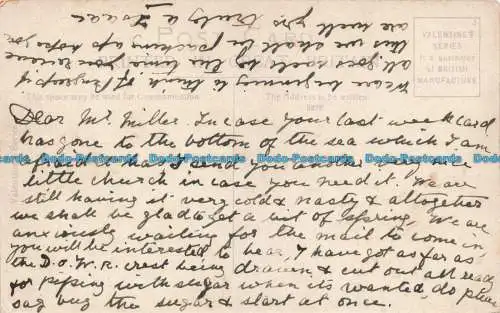 Dear Mr. Miller. In case your last week card
has gone to the bottom of the sea which I am
afraid it has I send you another of the
little church in case you need it. We are
still having it very cold & nasty & altogether
we shall be glad to get a bit of spring. We are
anxiously waiting for the mail to come in,
you will be interested to hear, I have got as far as
the D.O.W.R. crest being drawn & cut out all ready
for piping with sugar when its wanted, do please
say buy the sugar & start at once.
We are beginning to think of
all goes well by the time you receive
this we shall be packing up hope you
are well yrs truly
POST CARD
This space may be used for Communication
The Address to be written
here
VALENTINE'S
SERIES
OF BRITISH
MANUFACTURE
Postcards Postcards Postcards Postcards Postcards Postcards